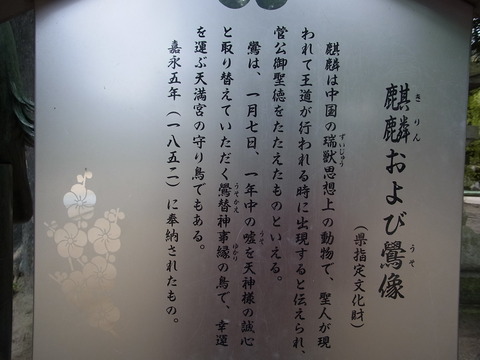 麒麟および鷽像
きりん
うそ
(県指定文化財)
麒麟は中国の瑞獣思想上の動物で、聖人が現
ずいじゅう
われて王道が行われる時に出現すると伝えられ、
菅公御聖徳をたたえたものといえる。
鷽は、一月七日、一年中の嘘を天神様の誠心
うそ
と取り替えていただく鷽替神事縁の鳥で、幸運
うそかえ
ゆかり
を運ぶ天満宮の守り鳥でもある。
嘉永五年(一八五二)に奉納されたもの。